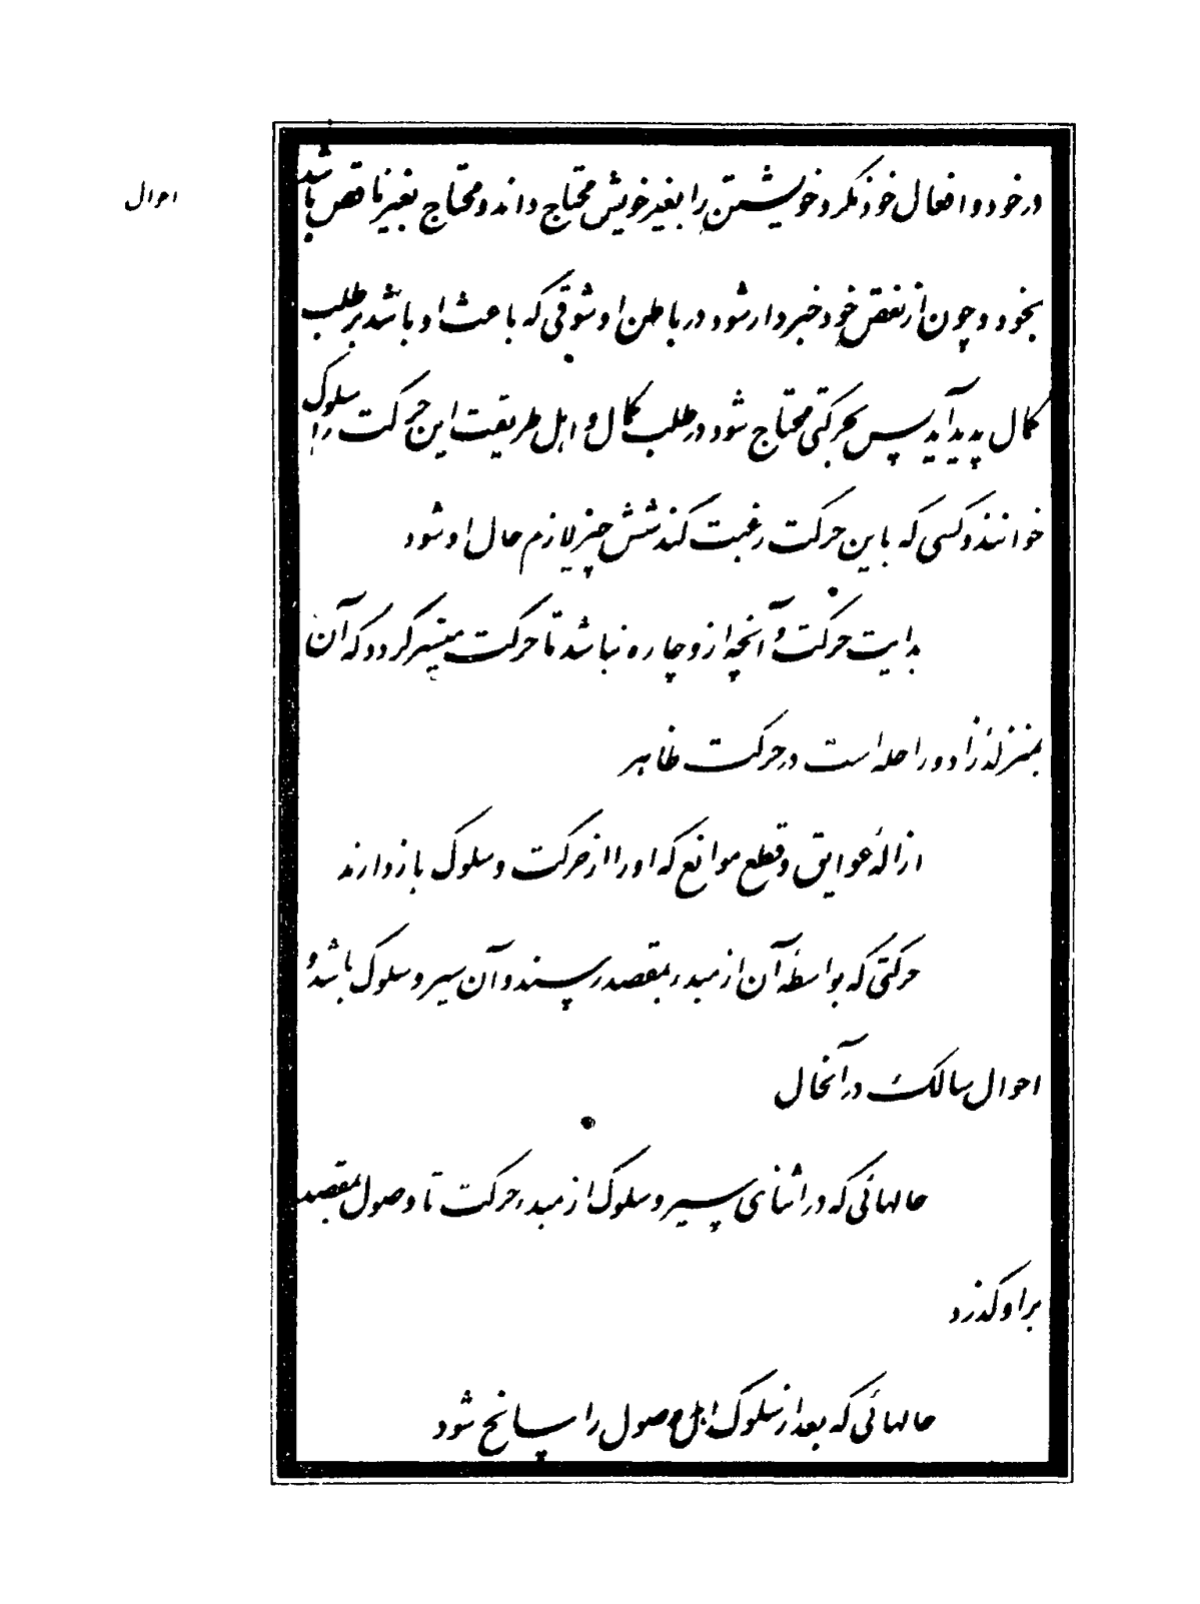 در خود و افعال خود نگرد خویشتن را بغیر خویش محتاج داند و محتاج بغیر ناقص باشد
بخود و چون از نقص خود خبردار شود در باطن او شوقی که باعث او باشد بر طلب
کمال پدید آید پس بحرکتی محتاج شود در طلب کمال و اهل طریقت این حرکت را سلوک
خوانند و کسی که باین حرکت رغبت کند شش چیز لازم حال او شود
بدایت حرکت و آنچه ازو چاره نباشد تا حرکت میسر گردد که آن
بمنزلهٔ زاد و راحله است در حرکت ظاهر
ازالهٔ عوایق و قطع موانع که او را از حرکت و سلوک بازدارند
حرکتی که بواسطهٔ آن از مبدء بمقصد رسند و آن سیر و سلوک باشد و
احوال سالک در آنحال
حالهائی که در اثنای سیر و سلوک از مبدء حرکت تا وصول بمقصد
بر او گذرد
حالهائی که بعد از سلوک اهل وصول را سانح شود
احوال